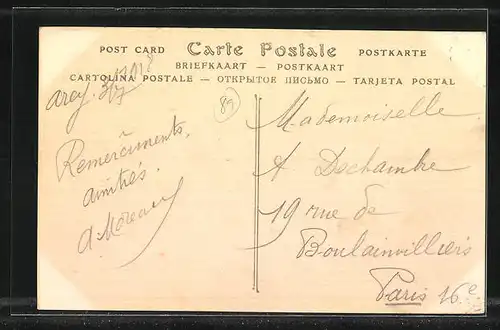 POST CARD Carte Postale POSTKARTE
BRIEFKAART — POSTKAART
CARTOLINA POSTALE — ОТКРЫТОЕ ПИСЬМО — TARJETA POSTAL
89
Remerciments,
amitiés.
A. Moreau
Mademoiselle
A Dechambre
19 rue de
Boulainvilliers
Paris 16e